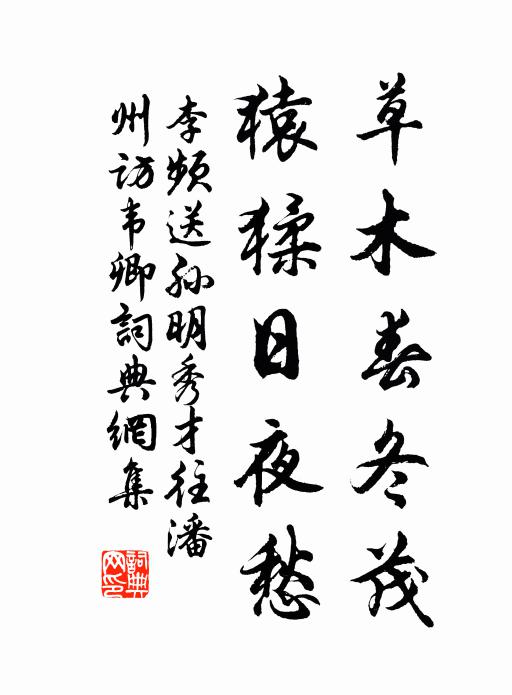 草木春冬茂
猿猱日夜愁
李频送孙明秀才往潘
州访韦卿詞典網集
詞典
网印